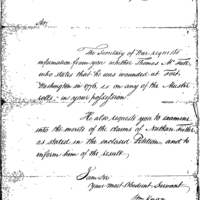 Sir,
The Secretary of War requests
information from you whether Thomas Mc
who states that he was wounded at Fort
Washington in 1776, is on any of the Muster
rolls in your possession
He also requests you to examine
into the merits of the claims of Nathan Fuller
as stated in the inclosed Petition, and to
inform him of the result.
I am Sir
Your most Obedient Servant
Wm Knox